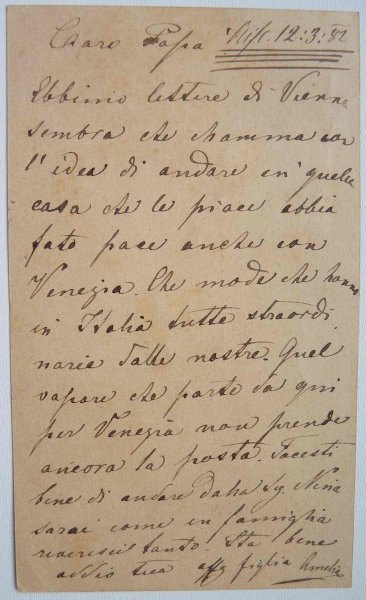 Caro Papa Risp. 12:3:82
Ebbimo lettere di Vienna
sembra che Mamma con
l'idea di andare in quella
casa che le piace abbia
fato pace anche con
Venezia. Che mode che hanno
in Italia tutte straordi
narie dalle nostre. Quel
vapore che parte da qui
per Venezia non prende
ancora la posta. Facesti
bene di andare dalla Sg. Nina
sarai come in famiglia
riverisci tanto. Sta bene
addio tua aff figlia Amelia